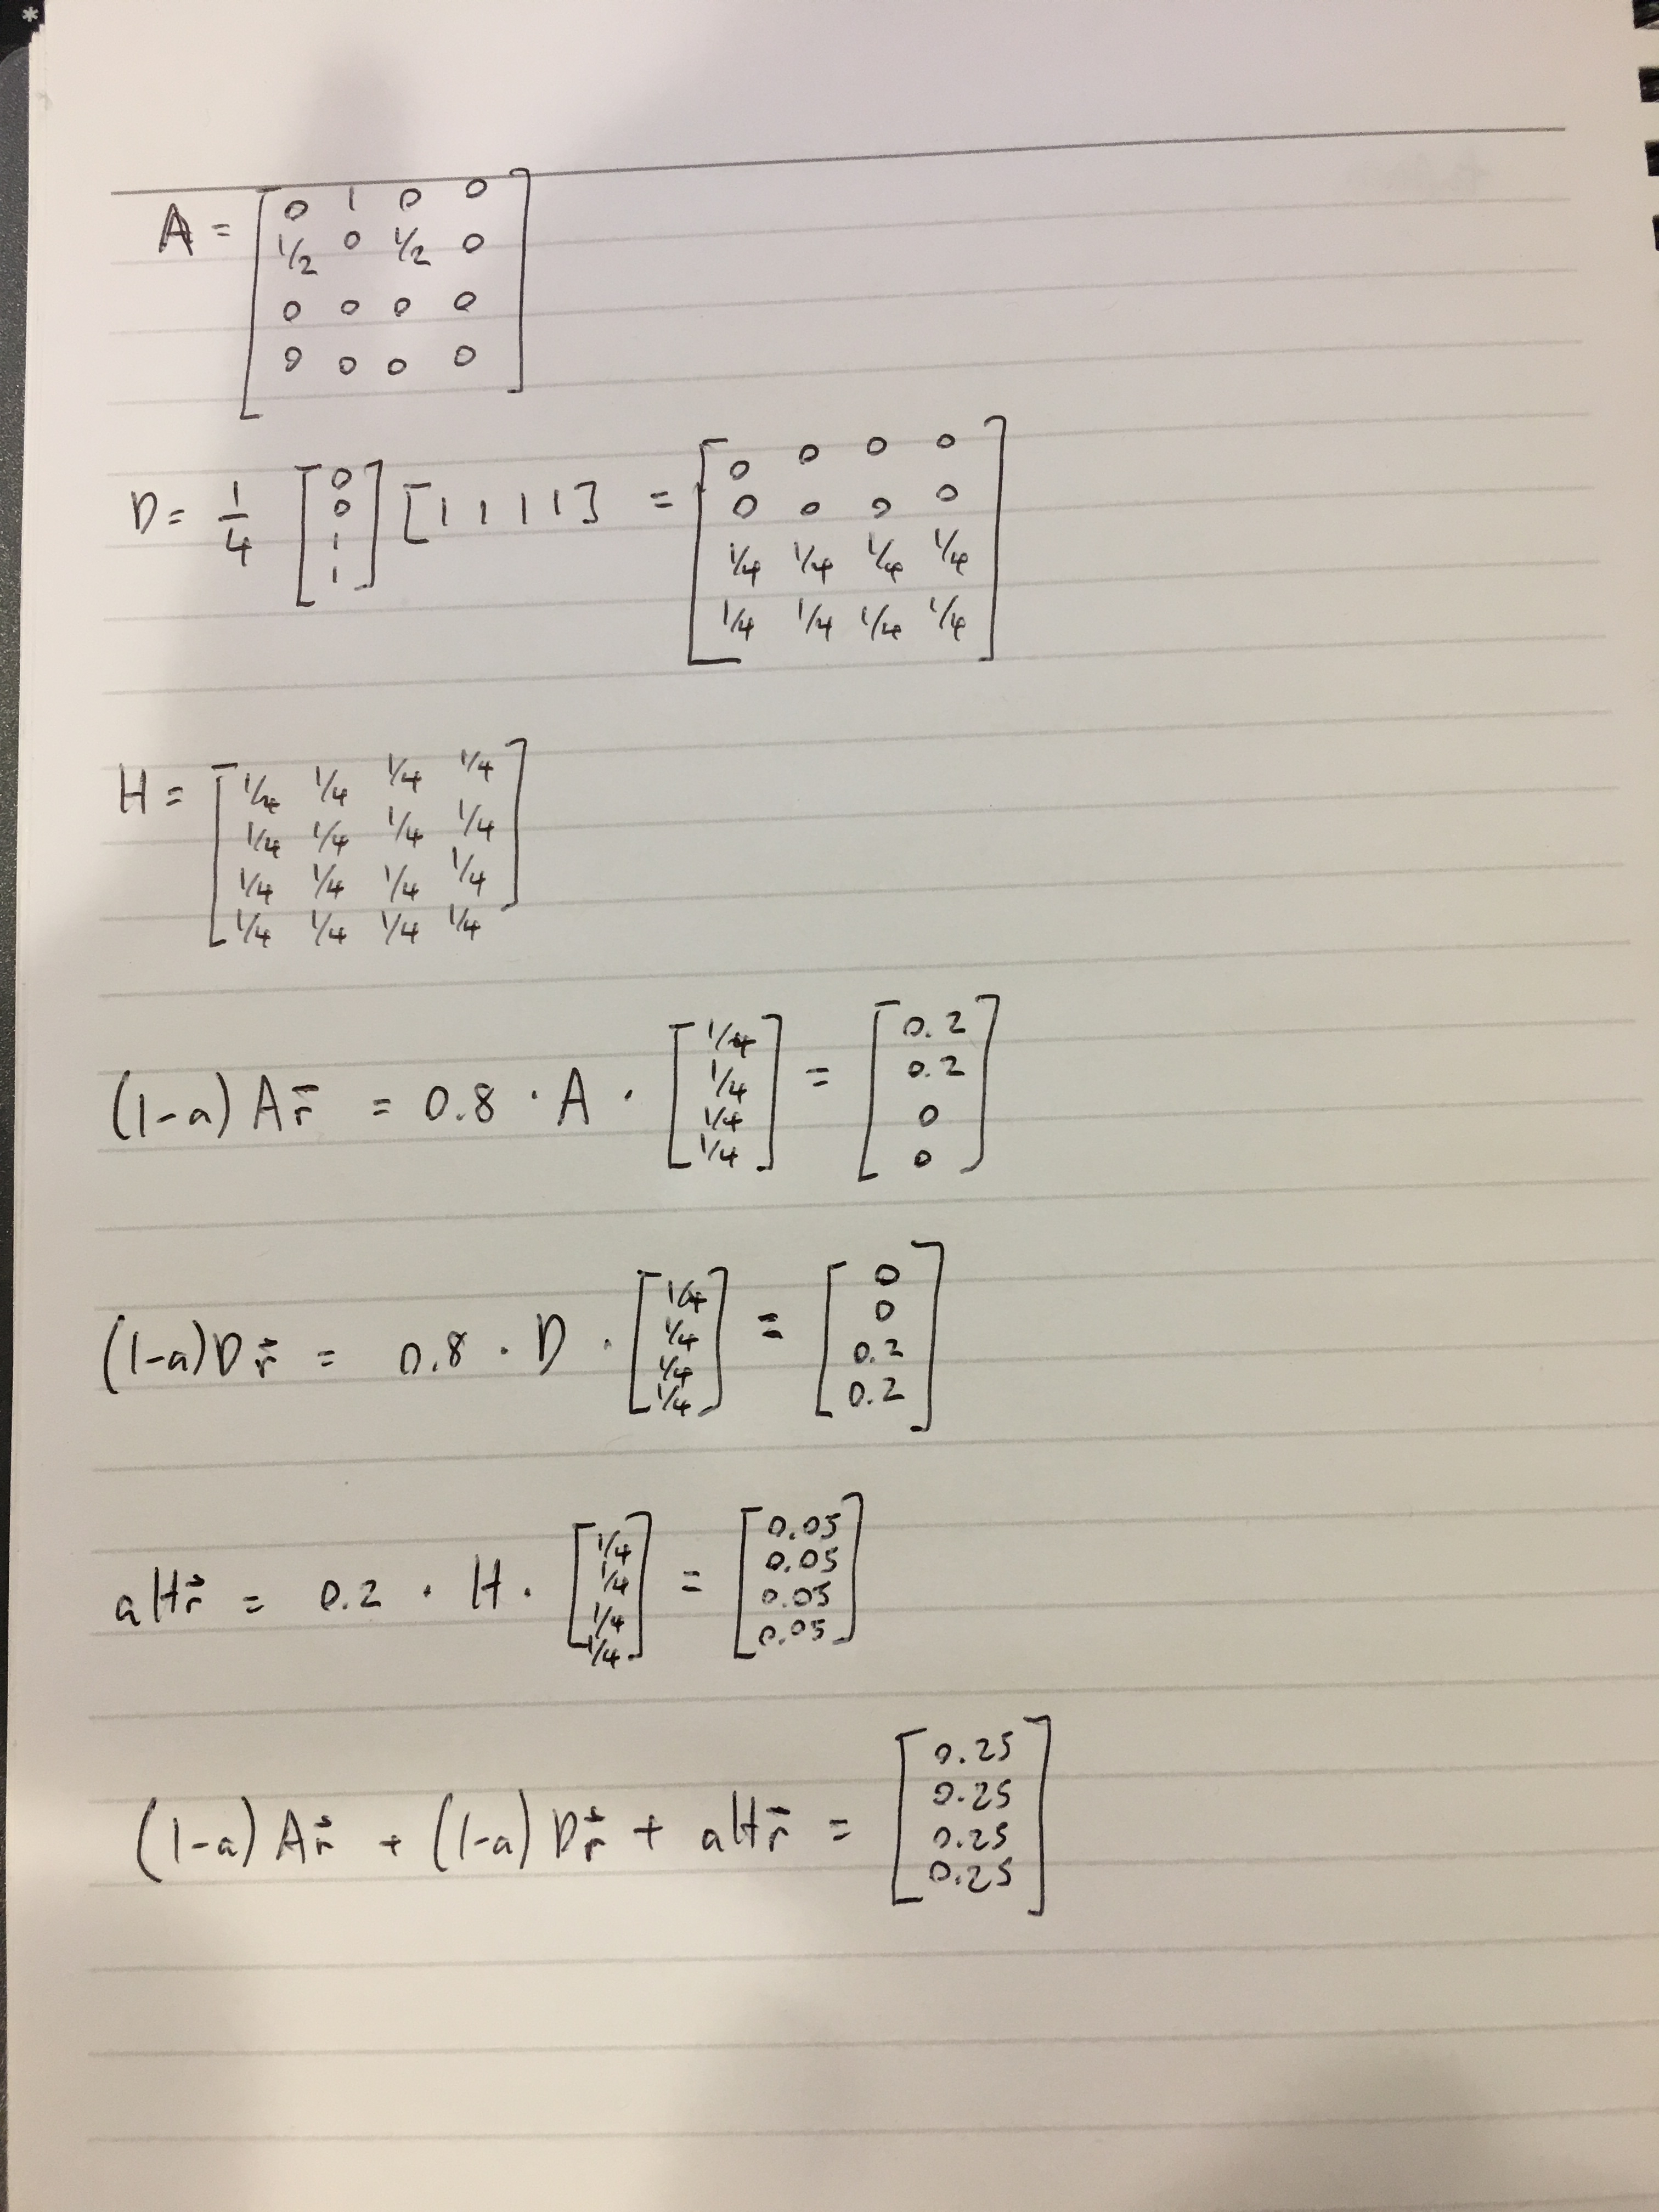 A = [0 1 0 0
1/2 0 1/2 0
0 0 0 0
0 0 0 0]
D = 1/4 [0 0 1 1] [1 1 1 1] = [0 0 0 0
0 0 0 0
1/4 1/4 1/4 1/4
1/4 1/4 1/4 1/4]
H = [1/4 1/4 1/4 1/4
1/4 1/4 1/4 1/4
1/4 1/4 1/4 1/4
1/4 1/4 1/4 1/4]
(1-a) A r⃗ = 0.8 · A · [1/4 1/4 1/4 1/4] = [0.2 0.2 0 0]
(1-a) D r⃗ = 0.8 · D · [1/4 1/4 1/4 1/4] = [0 0 0.2 0.2]
a H r⃗ = 0.2 · H · [1/4 1/4 1/4 1/4] = [0.05 0.05 0.05 0.05]
(1-a) A r⃗ + (1-a) D r⃗ + a H r⃗ = [0.25 0.25 0.25 0.25]